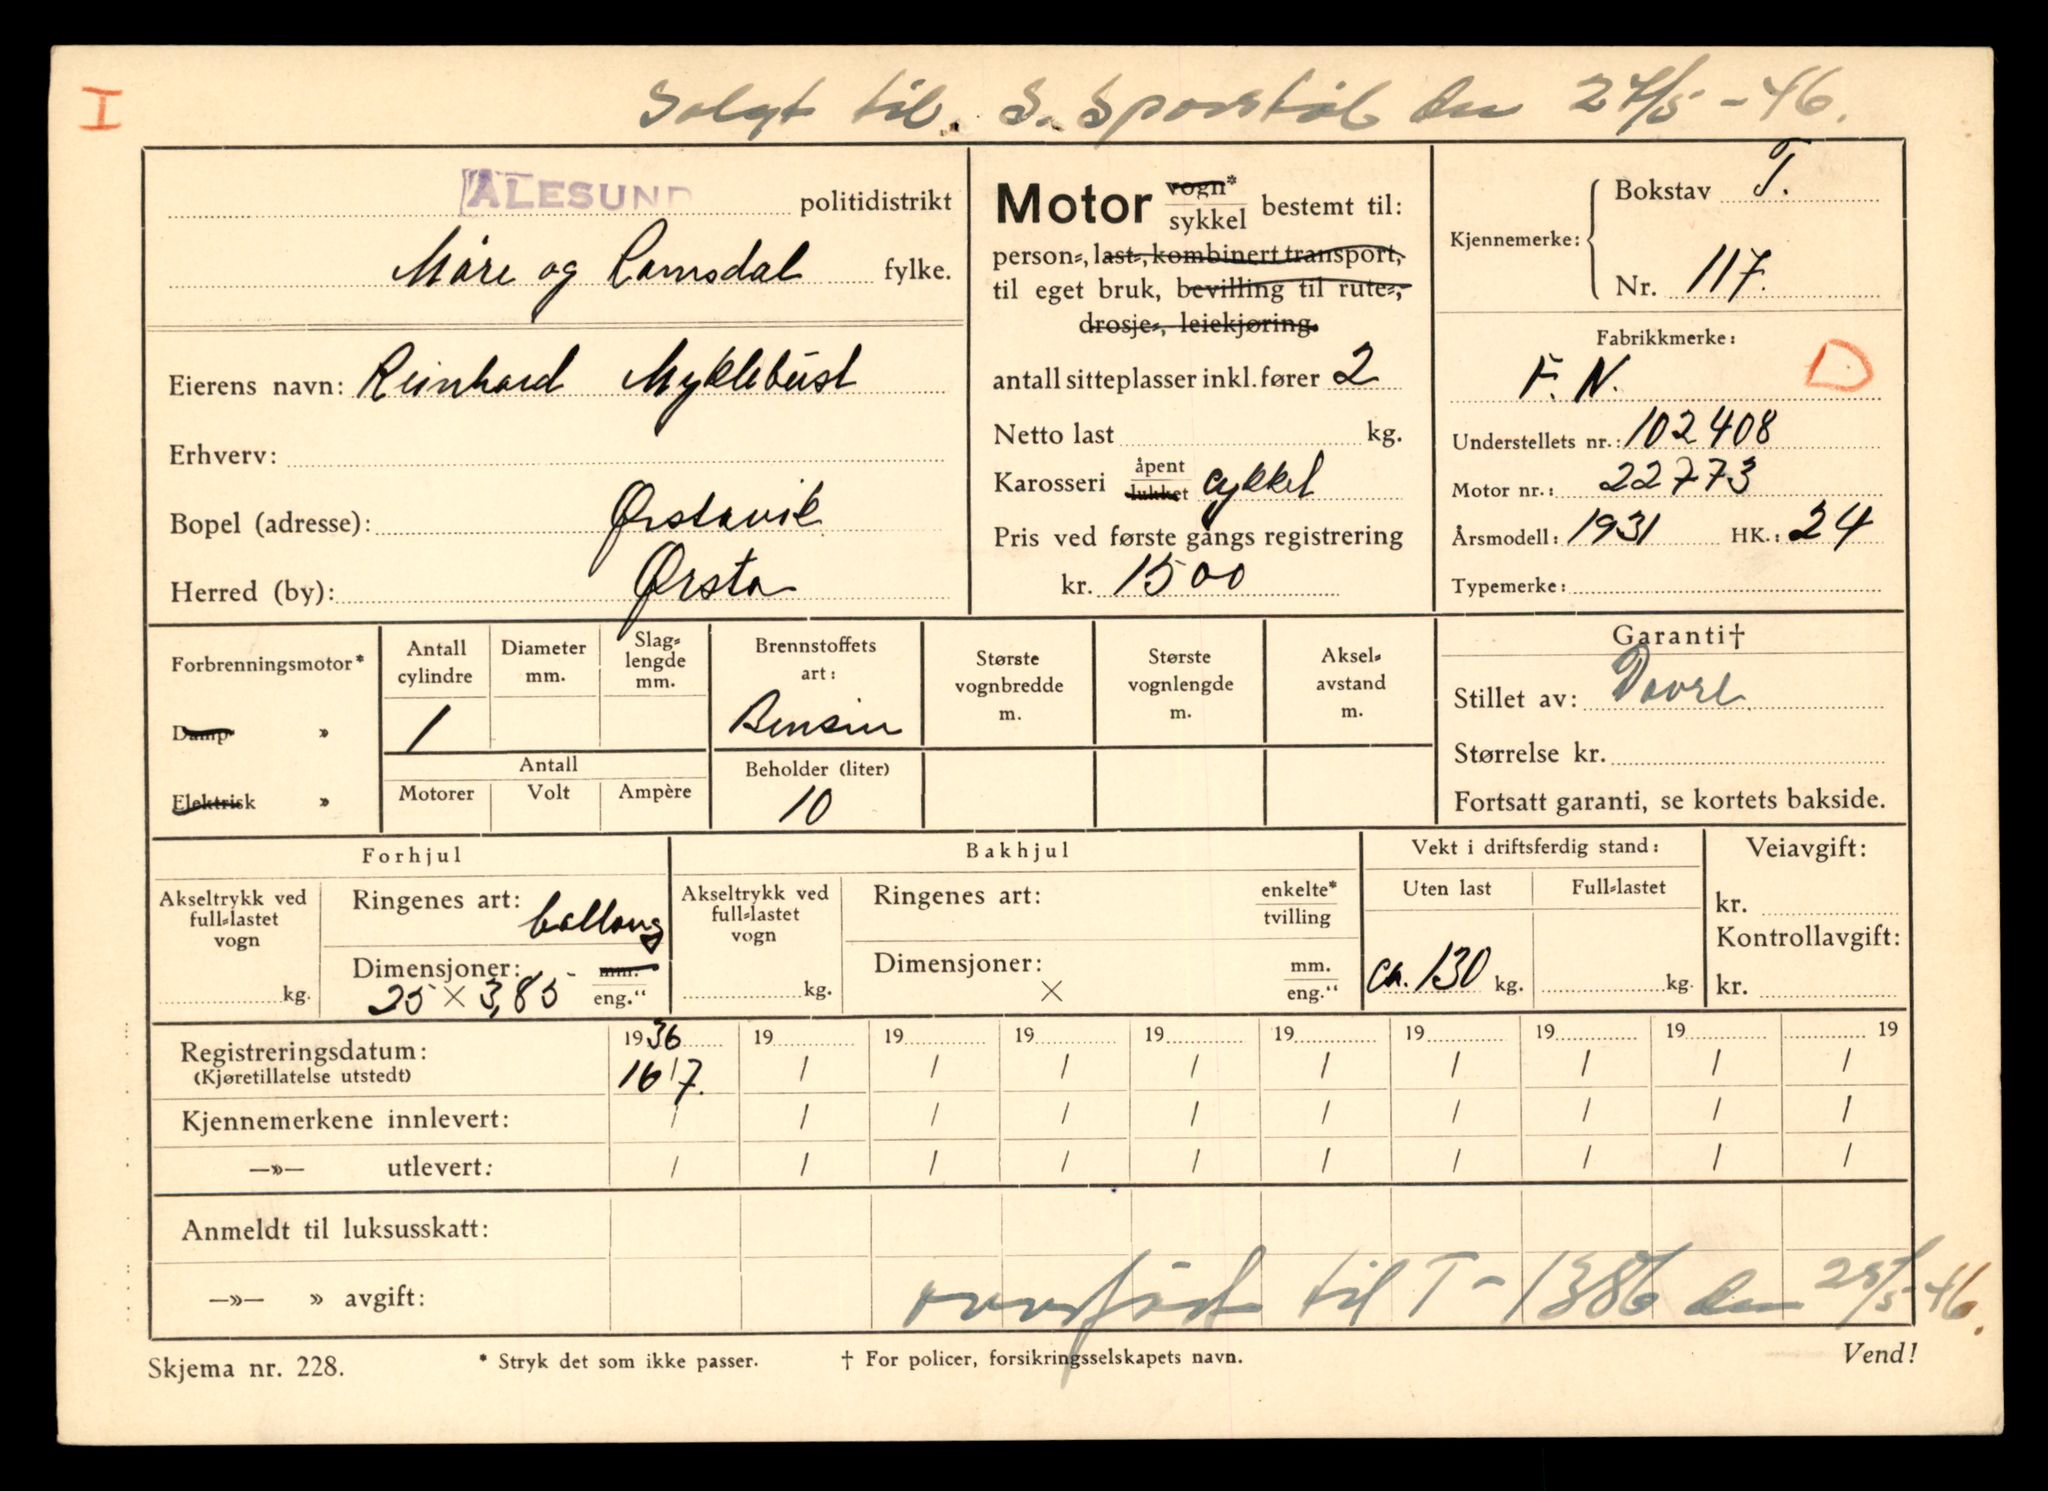 I
Solgt til S. Sporstøl den 27/5-46.
ÅLESUND politidistrikt
Møre og Romsdal fylke.
Eierens navn: Reinhard Myklebust
Erhverv:
Bopel (adresse): Ørstavik
Herred (by): Ørsta
Motor vogn* sykkel bestemt til:
person-, last-, kombinert transport,
til eget bruk, bevilling til rute-,
drosje-, leiekjøring.
antall sitteplasser inkl. fører 2
Netto last kg.
Karosseri åpent lukket cykkel
Pris ved første gangs registrering
kr. 1500
Kjennemerke: Bokstav T.
Nr. 117.
Fabrikkmerke:
F. N. D
Understellets nr.: 102408
Motor nr.: 22773
Årsmodell: 1931 HK.: 24
Typemerke:
Forbrenningsmotor*
Damp »
Elektrisk »
Antall cylindre
Diameter mm.
Slag-lengde mm.
1
Antall
Motorer Volt Ampère
Brennstoffets art:
Bensin
Beholder (liter)
10
Største vognbredde m.
Største vognlengde m.
Aksel-avstand m.
Garanti†
Stillet av: Dovre
Størrelse kr.
Fortsatt garanti, se kortets bakside.
Forhjul
Akseltrykk ved full-lastet vogn
kg.
Ringenes art: ballong
Dimensjoner: mm.
25 × 3,85 eng."
Bakhjul
Akseltrykk ved full-lastet vogn
kg.
Ringenes art: enkelte* tvilling
Dimensjoner: mm.
× eng."
Vekt i driftsferdig stand:
Uten last Full-lastet
ca. 130 kg. kg.
Veiavgift:
kr.
Kontrollavgift:
kr.
1936 19 19 19 19 19 19 19 19 19
Registreringsdatum:
(Kjøretillatelse utstedt) 16/7. / / / / / / / / /
Kjennemerkene innlevert: / / / / / / / / / /
—»— utlevert: / / / / / / / / / /
Anmeldt til luksusskatt:
—»— » avgift:
overført til T-1386 den 28/5-46.
Skjema nr. 228. * Stryk det som ikke passer. † For policer, forsikringsselskapets navn. Vend!